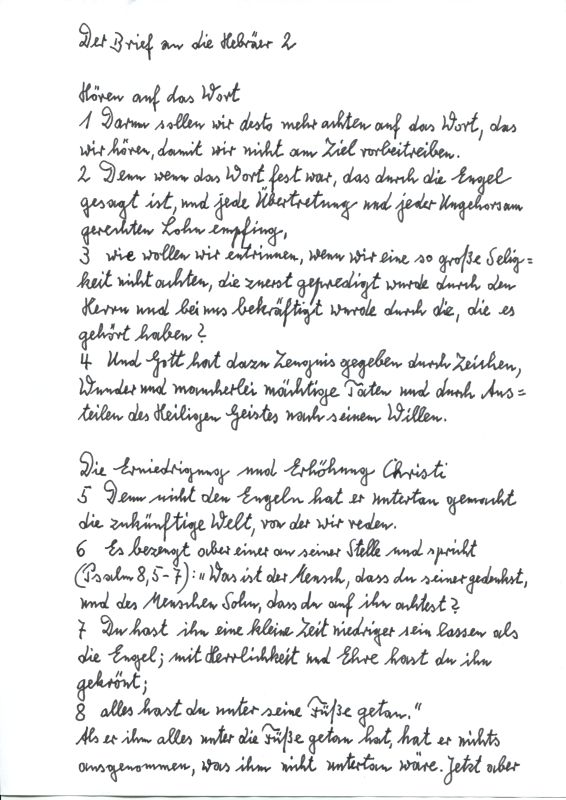 Der Brief an die Hebräer 2
Hören auf das Wort
1 Darum sollen wir desto mehr achten auf das Wort, das
wir hören, damit wir nicht am Ziel vorbeitreiben.
2 Denn wenn das Wort fest war, das durch die Engel
gesagt ist, und jede Übertretung und jeder Ungehorsam
gerechten Lohn empfing,
3 wie wollen wir entrinnen, wenn wir eine so große Selig=
keit nicht achten, die zuerst gepredigt wurde durch den
Herrn und bei uns bekräftigt wurde durch die, die es
gehört haben?
4 Und Gott hat dazu Zeugnis gegeben durch Zeichen,
Wunder und mancherlei mächtige Taten und durch Aus=
teilen des Heiligen Geistes nach seinem Willen.
Die Erniedrigung und Erhöhung Christi
5 Denn nicht den Engeln hat er untertan gemacht
die zukünftige Welt, von der wir reden.
6 Es bezeugt aber einer an seiner Stelle und spricht
(Psalm 8,5-7): "Was ist der Mensch, dass du seiner gedenkst,
und des Menschen Sohn, dass du auf ihn achtest?
7 Du hast ihn eine kleine Zeit niedriger sein lassen als
die Engel; mit Herrlichkeit und Ehre hast du ihn
gekrönt;
8 alles hast du unter seine Füße getan."
Als er ihm alles unter die Füße getan hat, hat er nichts
ausgenommen, was ihm nicht untertan wäre. Jetzt aber